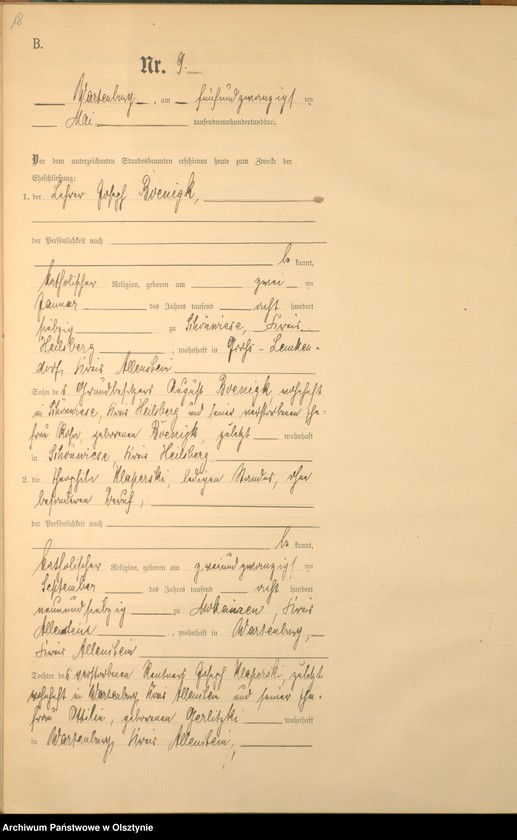 B.
Nr. 9.
Wartenburg, am fünfundzwanzigsten
Mai tausendneunhundertunddrei.
Vor dem unterzeichneten Standesbeamten erschienen heute zum Zwecke der
Eheschließung:
1. der Lehrer Joseph Boenigk,
der Persönlichkeit nach
be kannt,
katholischer Religion, geboren am zwei ten
Januar des Jahres tausend acht hundert
siebzig zu Schönwiese, Kreis
Heilsberg, wohnhaft in Groß-Lemken-
dorf, Kreis Allenstein
Sohn des Grundbesitzers August Boenigk, wohnhaft
in Schönwiese, Kreis Heilsberg und seiner verstorbenen Ehe-
frau Rosa, geborenen Boenigk, zuletzt wohnhaft
in Schönwiese, Kreis Heilsberg
2. die Theophila Klaperski, ledigen Standes, ohne
besonderen Beruf,
der Persönlichkeit nach
be kannt,
katholischer Religion, geboren am zweiundzwanzigsten
September des Jahres tausend acht hundert
neunundsiebzig zu Kreis
Allenstein, wohnhaft in Wartenburg,
Kreis Allenstein
Tochter des verstorbenen Rentners Joseph Klaperski, zuletzt
wohnhaft in Wartenburg, Kreis Allenstein und seiner Ehe-
frau Ottilie, geborenen Gerlitzki wohnhaft
in Wartenburg, Kreis Allenstein,
Archiwum Państwowe w Olsztynie